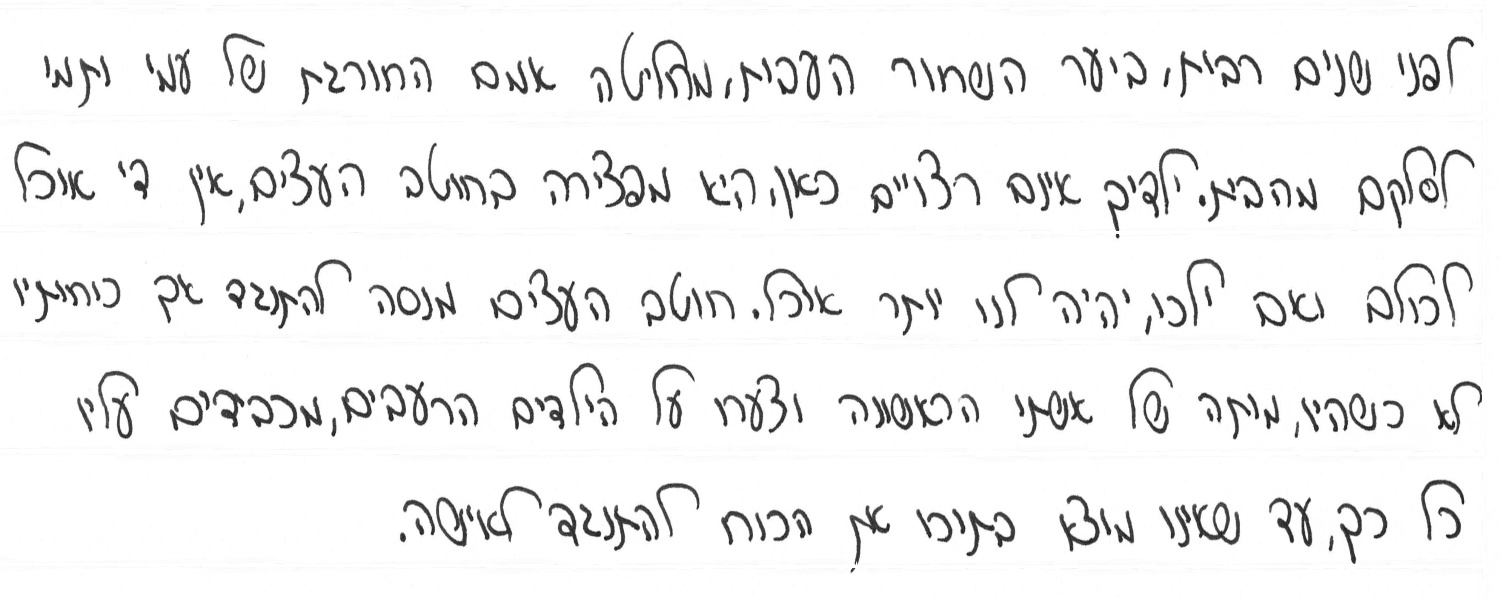 לפני שנים רבות, ביער השחור העבות, מחליטה אמם החורגת של עמי ותמי
לסלקם מהבית. ילדיך אינם רצויים כאן, היא מפצירה בחוטב העצים, אין די אוכל
לכולם ואם ילכו, יהיה לנו יותר אוכל. חוטב העצים מנסה להתנגד אך כוחותיו
לא כשהיו, מותה של אשתו הראשונה וצערו על הילדים הרעבים, מכבידים עליו
כל כך, עד שאינו מוצא בתוכו את הכוח להתנגד לאיישה.